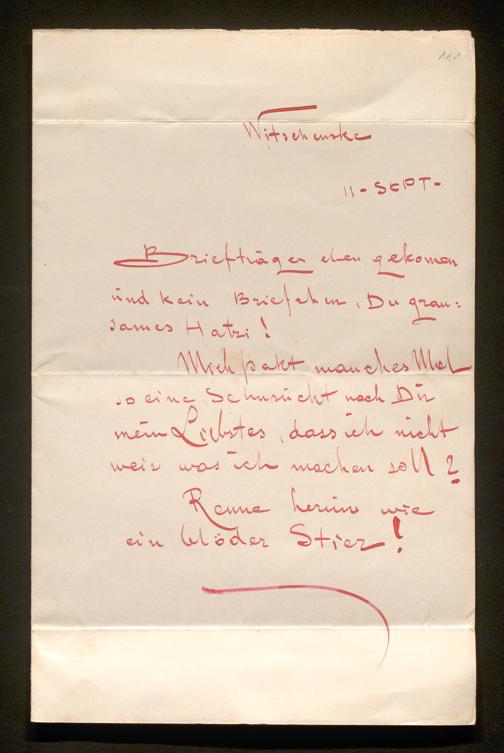 111
Witschenske
11 - SEPT -
Briefträger eben gekomen
und kein Briefchen, Du grau=
sames Hatzi!
Mich pakt manches Mal
so eine Sehnsücht nach Dir
mein Liebstes, dass ich nicht
weis was ich machen soll?
Renne herüm wie
ein blöder Stier!